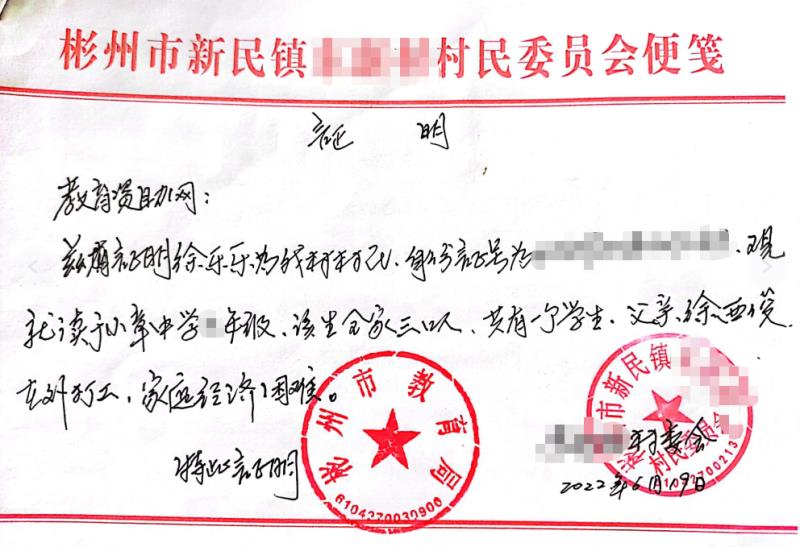 彬州市新民镇 村民委员会便笺
证 明
教育资助网：
兹有证明徐乐乐为我村村民、身份证号为 、现
就读于小章中学 年级、该生全家三口人、共有一个学生、父亲徐西
在外打工，家庭经济困难。
特此证明
村委会
2022年6月09日
彬州市教育局
6104270030900
彬州市新民镇 村民委员会